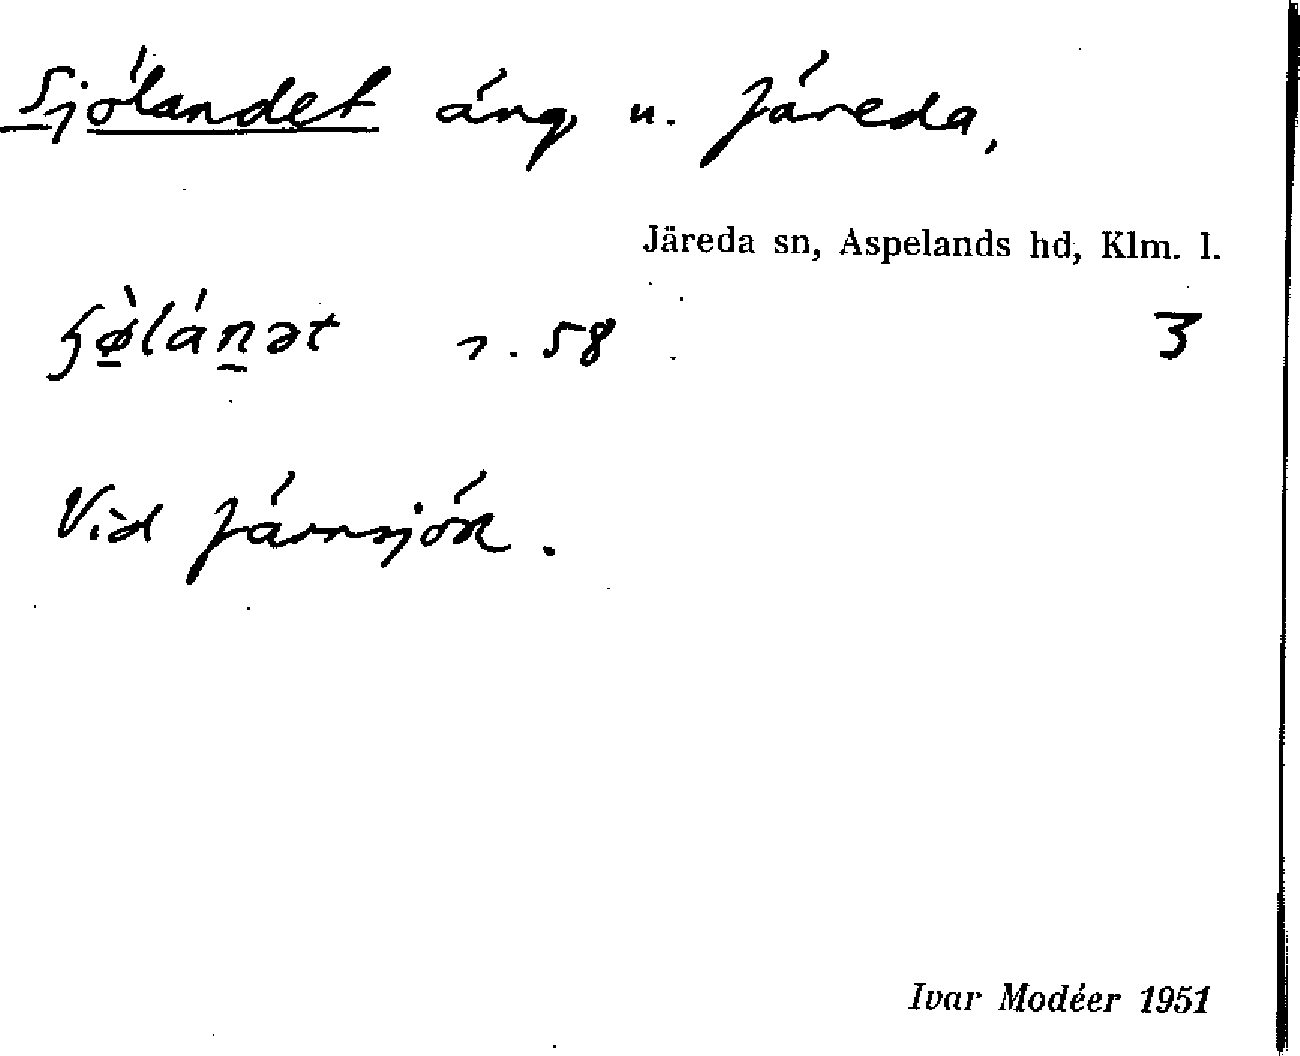 Sjölandet äng u. Järeda,
Järeda sn, Aspelands hd, Klm. l.
ʃø̀lánət 58 3
Vid Järnsjön.
Ivar Modéer 1951